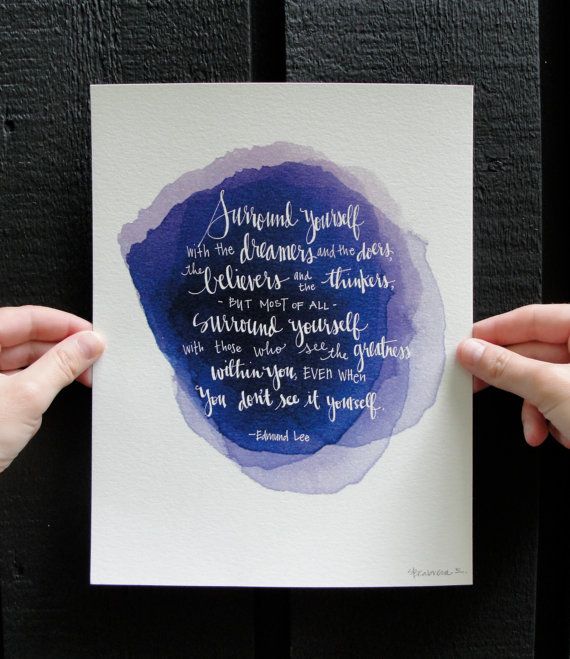 Surround yourself
with the dreamers and the doers,
the believers and the thinkers,
- BUT MOST OF ALL -
Surround yourself
with those who see the greatness
within you, EVEN WHEN
You don't see it yourself.
-Edmund Lee